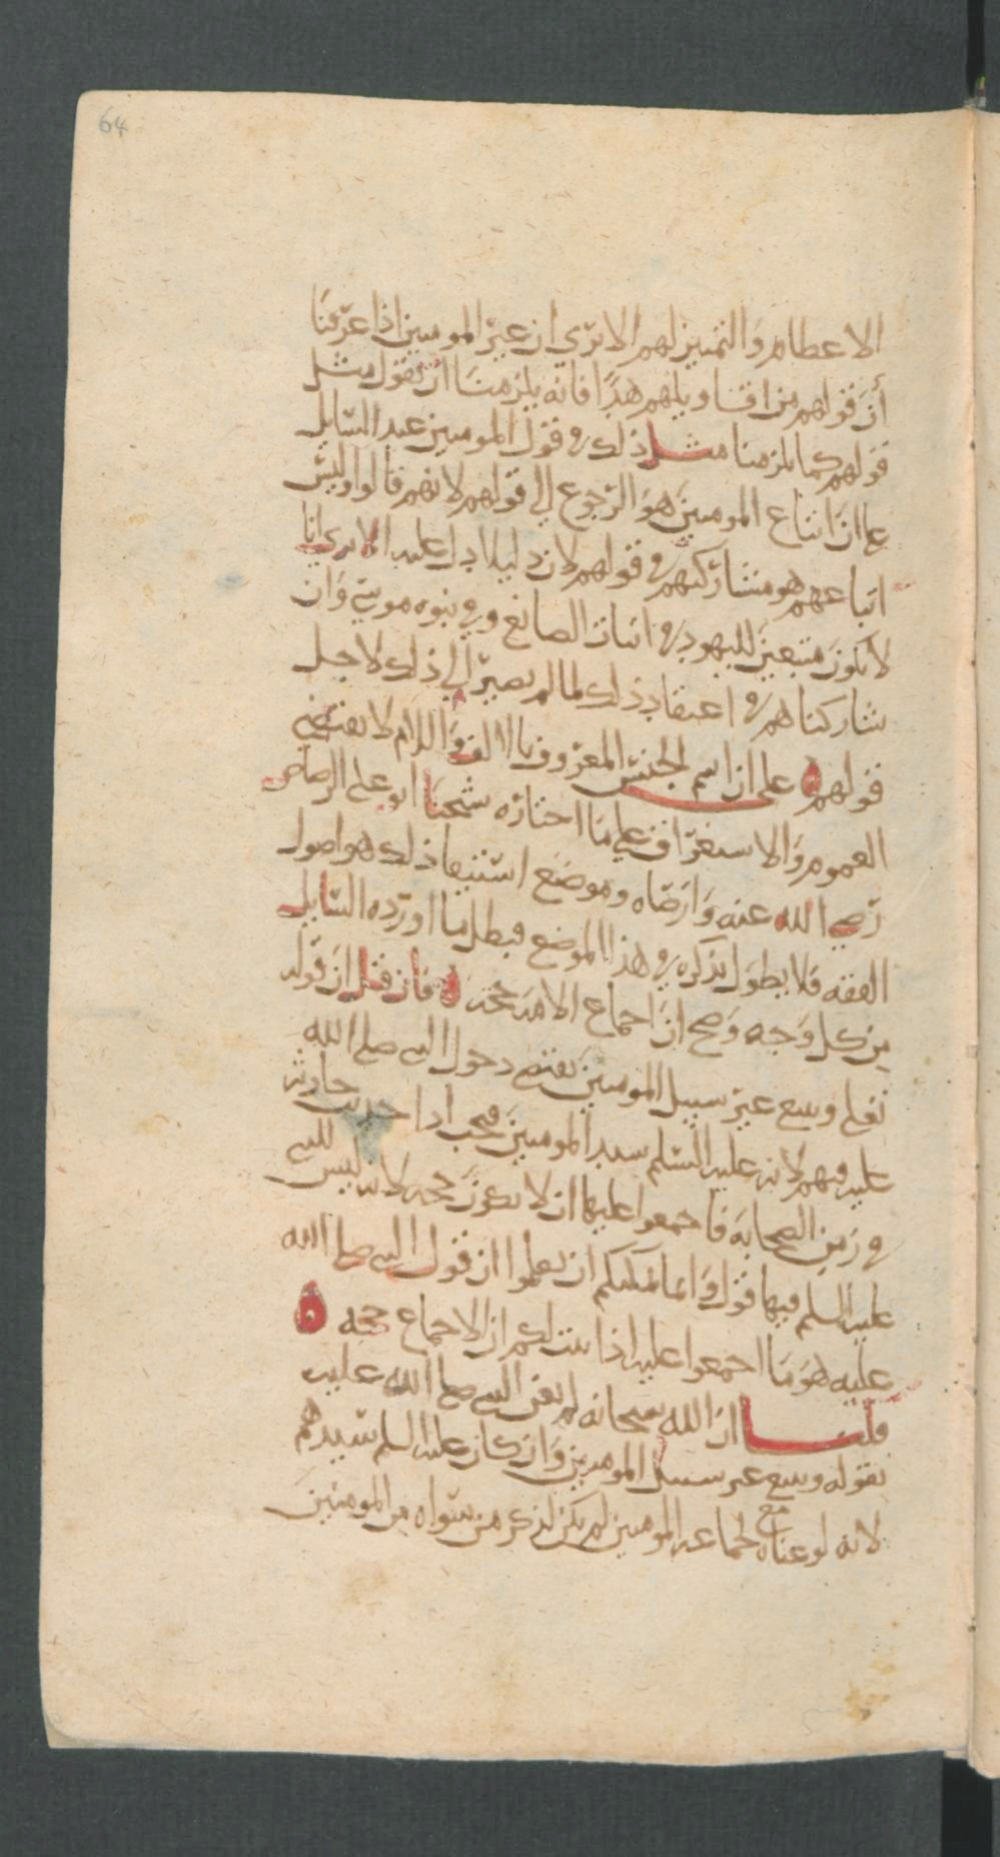 64
الاعظام والتمييز لهم الا ترى ان غير المومنين اذا عرفنا
أن قولهم من اقاويلهم هذا فانه يلزمنا ان نقول مثل
قولهم كما يلزمنا مثل ذلك في قول المومنين عند السايل
على ان اتباع المومنين هو الرجوع الى قولهم لانهم قالوا وليس
اتباعهم هو مشاركتهم في قولهم لان دليلا دل عليه الا ترى انا
لا نكون متبعين لليهود في اثبات الصانع وفي نبوه موسى وان
شاركناهم في اعتقاد ذلك لما لم نصير الى ذلك لاجل
قولهم ه على ان اسم الجنس المعروف بالالف واللام لا يقتضي
العموم والاستغراق على ما اختاره شيخنا ابو علي الرصاص
رضي الله عنه وارضاه وموضع استيفا ذلك هو اصول
الفقه فلا يطول بذكره في هذا الموضع فبطل ما اورده السايل
من كل وجه وصح ان اجماع الامه حجه ه فان قيل ان قوله
تعلى ويتبع غير سبيل المومنين يقتضي دخول النبي صلى الله
عليه فيهم لانه عليه السلم سيد المومنين فيجب اذا حدثت حادثه
في زمن الصحابة فاجمعوا عليها ان لا يكون حجه لانه ليس للنبي
عليه السلم فيها قول وانما يمكنكم ان تعلموا ان قول النبي صلى الله
عليه هو ما اجمعوا عليه اذا ثبت لكم ان الاجماع حجه ه
قلنا ان الله سبحانه لم يعن النبي صلى الله عليه
بقوله ويتبع غير سبيل المومنين وان كان عليه السلم سيدهم
لانه لو عناه مع جماعه المومنين لم يكن لذكر من سواه من المومنين